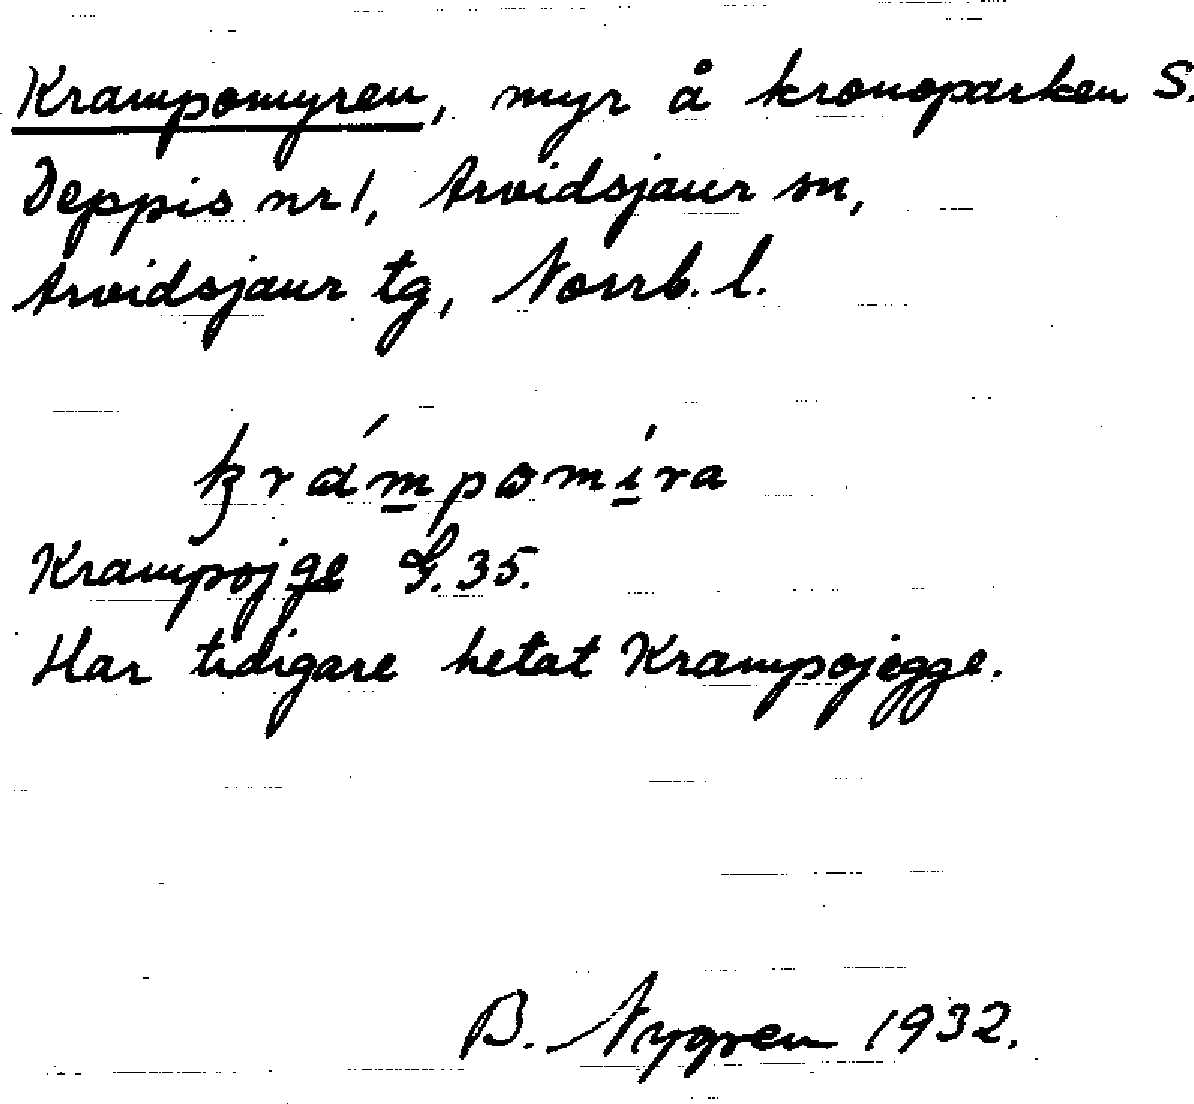 Krampomyren, myr å kronoparken S.
Deppis nr 1, Arvidsjaur sn,
Arvidsjaur tg, Norrb. l.
krámpomíra
Krampojge G. 35.
Har tidigare hetat Krampojegge.
B. Nygren 1932.